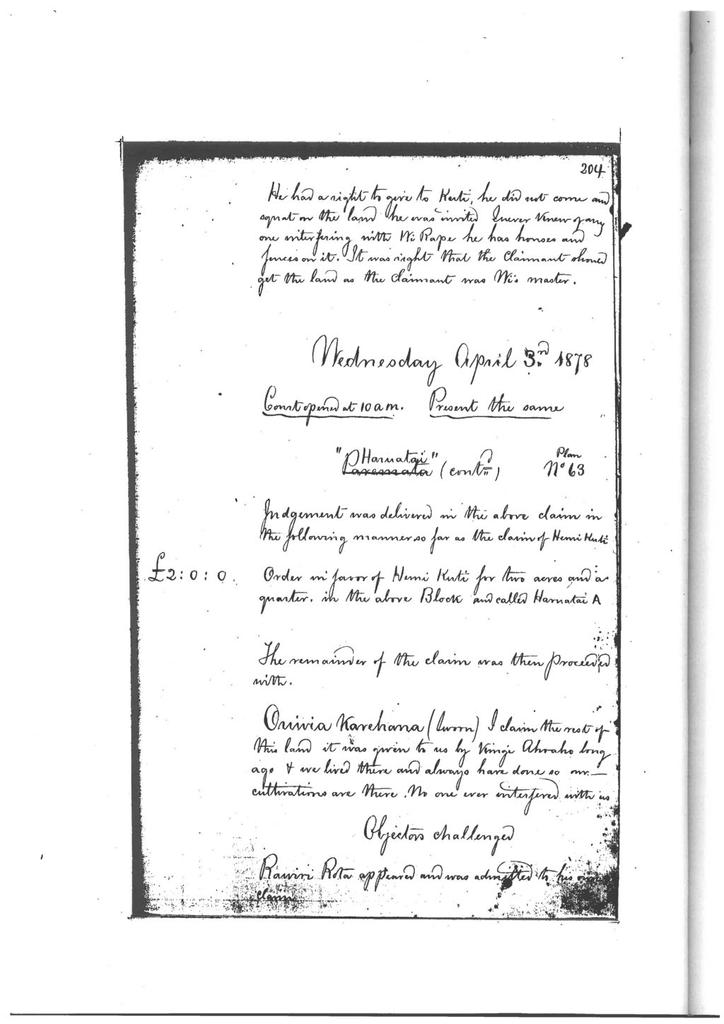 204
He had a right to give to Kuti, he did not come and
squat on the land he was invited I never knew of any
one interfering with Wi Rape he has houses and
fences on it. It was right that the Claimant should
get the land as the Claimant was Wi's master.
Wednesday April 3rd 1878
Court opened at 10 a.m. Present the same
"Haruatai"
Paremata (contd) Plan No 63
Judgement was delivered in the above claim in
the following manner so far as the claim of Hemi Kuti
£2:0:0. Order in favor of Hemi Kuti for two acres and a
quarter. in the above Block and called Haruatai A
The remainder of the claim was then proceeded
with.
Oriwia Karehana (Sworn) I claim the rest of
this land it was given to us by Kingi Ahoaho long
ago & we lived there and always have done so our
cultivations are there. No one ever interfered with us
Objectors challenged
Rawiri Rota appeared and was admitted to his own
claim